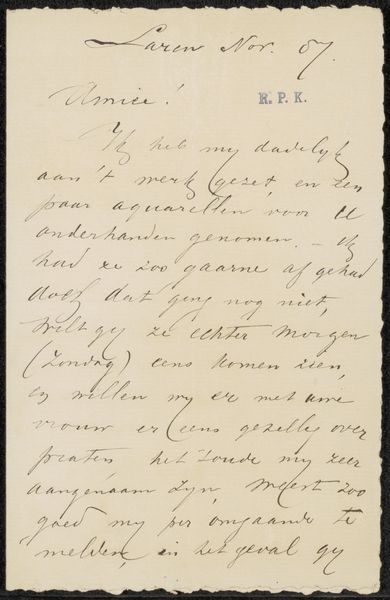 Laren Nov. 87.
Amice!
R. P. K.
Ik heb my dadelyk
aan't werk gezet, en een
paar aquarellen voor U
onderhanden genomen. – Ik
had ze zoo gaarne af gehad
doch dat ging nog niet,
Wilt gy ze echter morgen
(Zondag) eens komen zien,
en willen wy er met uwe
vrouw er eens gezellig over
praten, het zoude my zeer
aangenaam zyn, Weest zoo
goed my per omgaande te
melden, in het geval gy